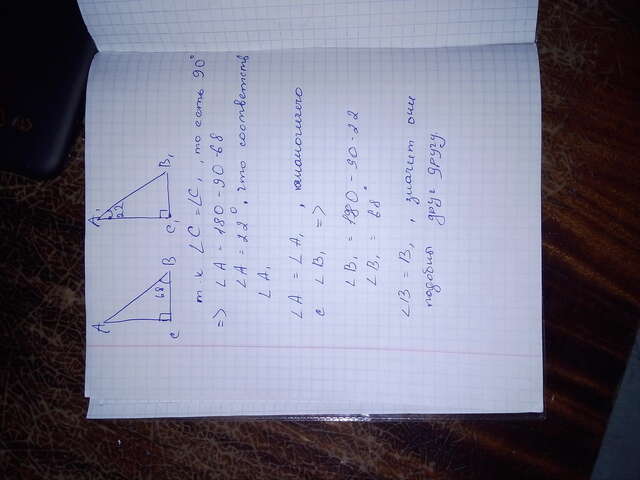 A
68
C
B
A₁
22
C₁
B₁
т.к ∠C = ∠C₁, то есть 90°
=> ∠A = 180 - 90 - 68
∠A = 22°, что соответств
∠A₁
∠A = ∠A₁, аналогичего
с ∠B₁ =>
∠B₁ = 180 - 90 - 22
∠B₁ = 68°
∠B = B₁, значит они
подобны друг другу.